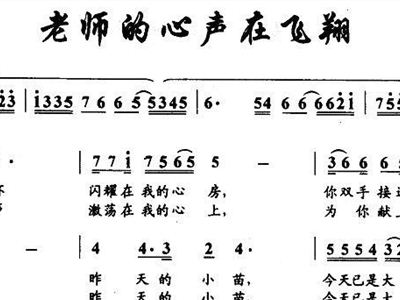 老师的心声在飞翔
2̇3̇ | 1̇335 7 6 6 5 5345 | 6· 54 6 6 6 662̇1̇ | 7 55
· 7 7 1̇ 7 5 6 5 5 – | 3 6 6 5
怀 闪耀在我的心 房, 你双手接过
激荡在我的心 上, 为 你献上
– | 4 4·3 2 4· | 5 5 5 4 3 2
昨 天的 小苗, 今天已是大
昨 天的 小苗, 今天已是大